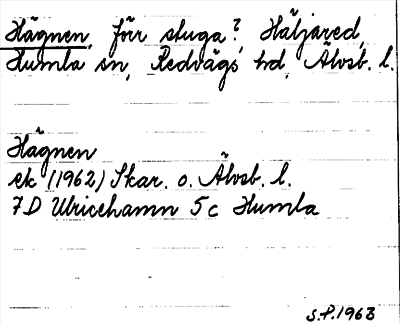 Hägnen, förr stuga?, Häljared,
Humla sn, Redvägs hd, Älvsb. l.
Hägnen
ek (1962) Skar. o. Älvsb. l.
7D Ulricehamn 5c Humla
S.P. 1963